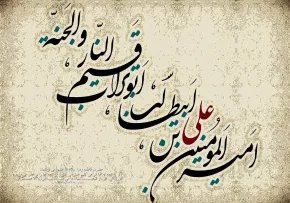 امیر المومنین
علی بن ابیطالب
ابوتراب قسیم
النار والجنة